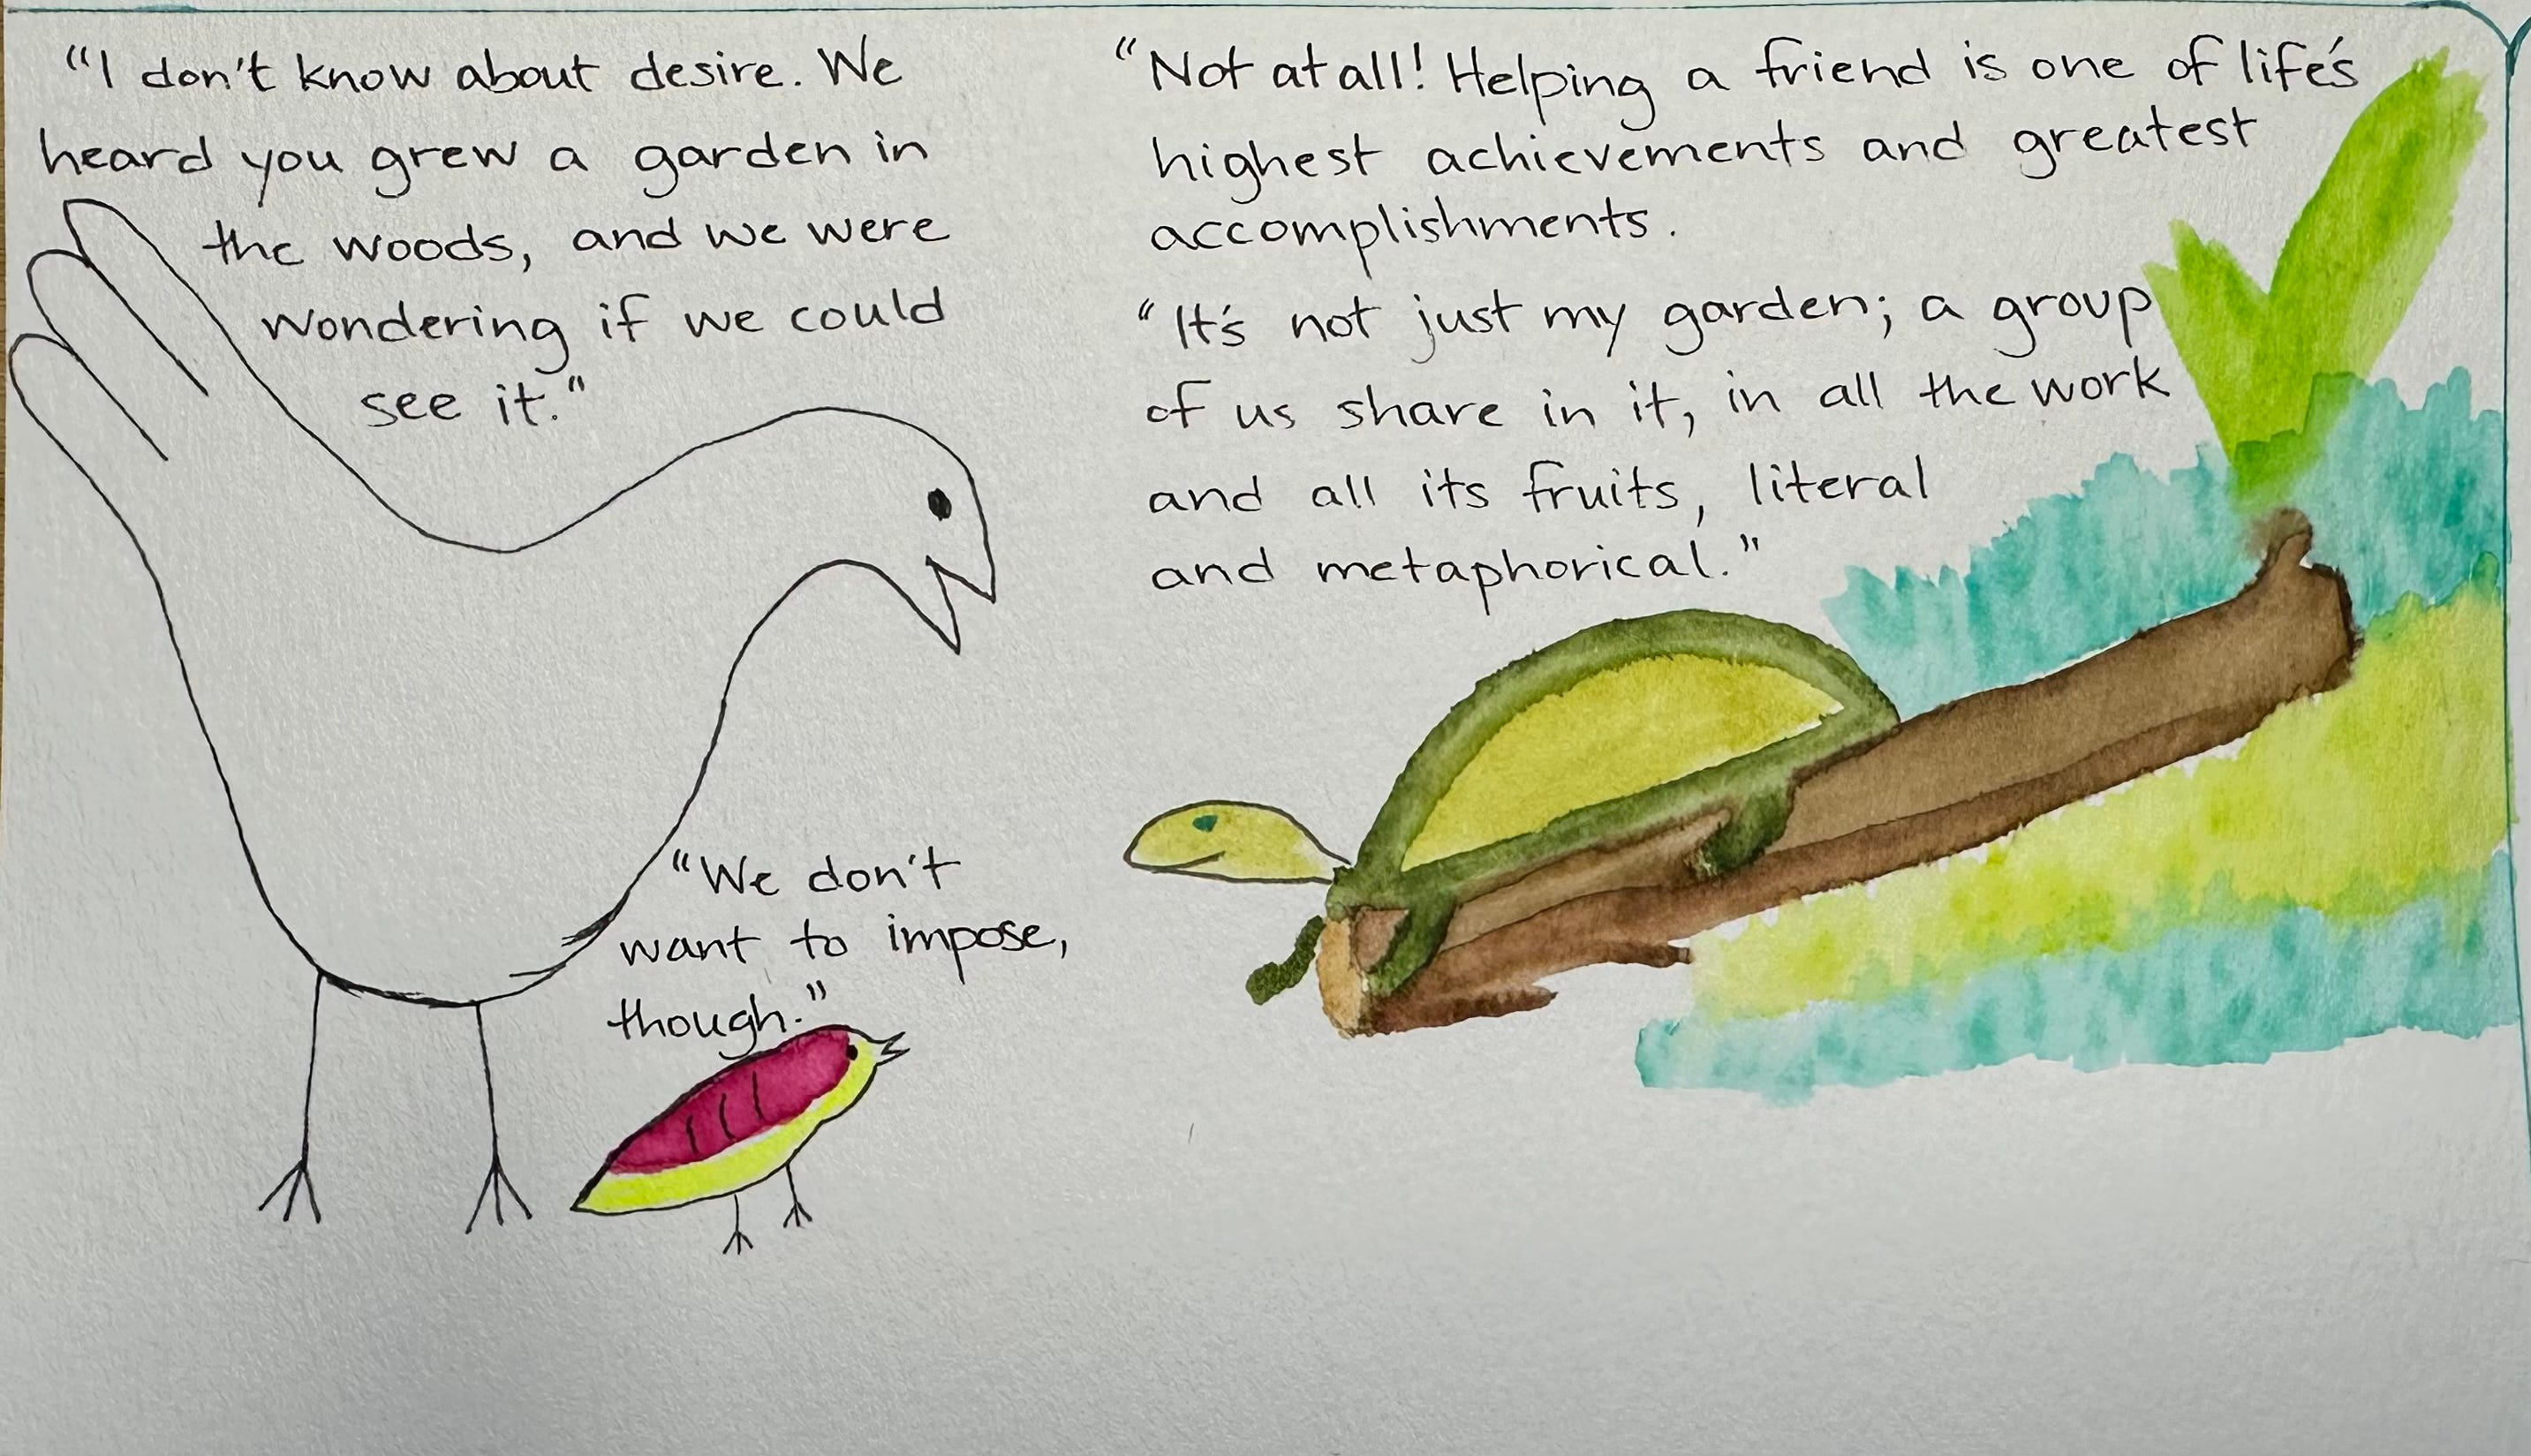 “I don't know about desire. We
heard you grew a garden in
the woods, and we were
wondering if we could
see it.”
“We don't
want to impose,
though.”
“Not at all! Helping a friend is one of life's
highest achievements and greatest
accomplishments.
“It's not just my garden; a group
of us share in it, in all the work
and all its fruits, literal
and metaphorical.”